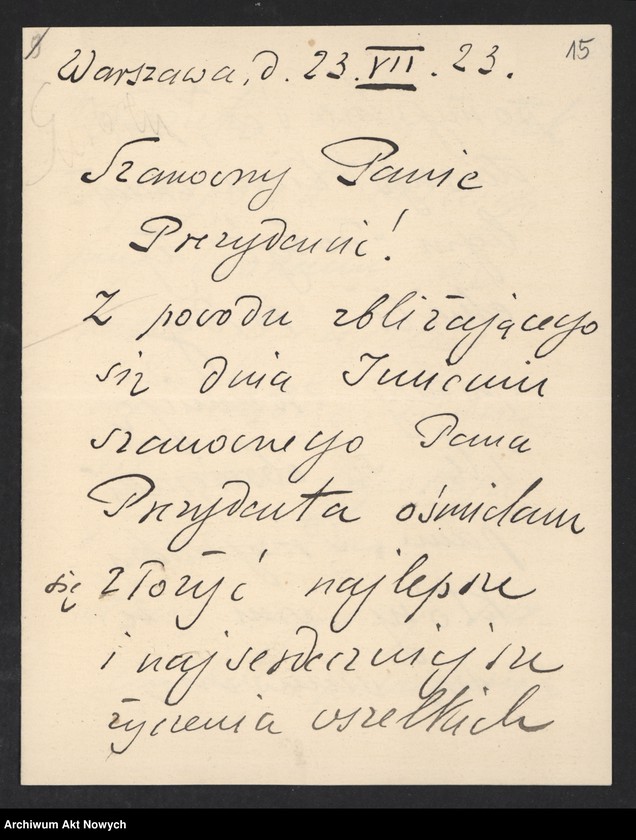 15
Warszawa, d. 23.VII.23.
Szanowny Panie
Prezydencie!
Z powodu zbliżającego
się dnia Imienin
szanownego Pana
Prezydenta ośmielam
się złożyć najlepsze
i najserdeczniejsze
życzenia wszelkich
Archiwum Akt Nowych